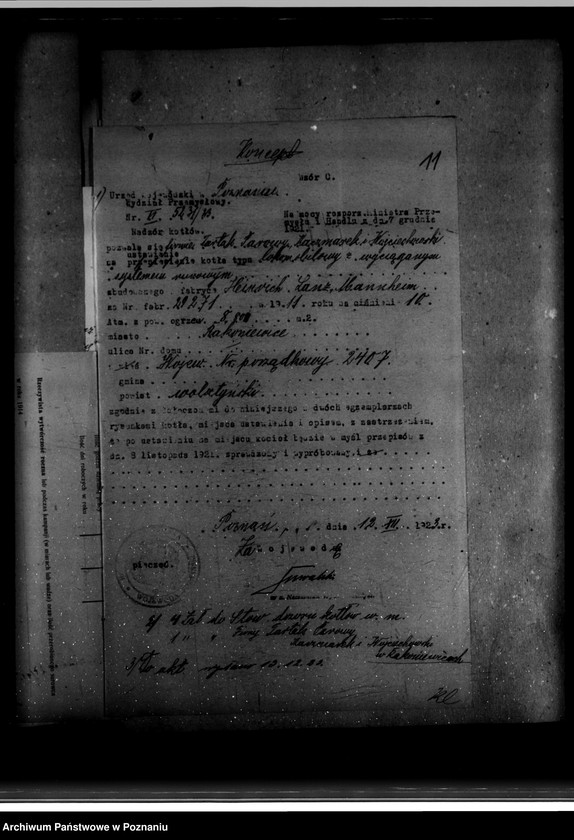 Koncept
11
Wzór C.
1) Urząd Wojewódzki w Poznaniu.
Wydział Przemysłowy.
Nr. 5421/23.
Nadzór kotłów.
Na mocy rozporz. Ministra Prze-
mysłu i Handlu z dn. 7 grudnia
1921.
pozwala się firmie Tartak Parowy, Kaczmarek i Wojciechowski
ustawienie
na przeniesienie kotła typu lokomobilowy z wyciąganym
systemem rurowym
zbudowanego fabryce Heinrich Lanz, Mannheim
za Nr. fabr. 29271. w 1911 roku na ciśnienie 10.
Atm. z pow. ogrzew. m.2.
miasto Rakoniewice
ulica Nr. domu
Wojew. Nr. porządkowy 2407.
gmina
powiat wolsztyński
zgodnie z dołączonymi do niniejszego w dwóch egzemplarzach
rysunkami kotła, miejsca ustawienia i opisem, z zastrzeżeniem,
że po ustawieniu na miejscu kocioł będzie w myśl przepisów z
dn. 8 listopada 1921. sprawdzony i wypróbowany i że
Poznań, dnia 12. XII. 1923.r.
Za Wojewodę
pieczęć.
2/ 4 Zał do Stow. dozoru kotłów w. m.
1 " " firmy Tartak Parowy
Kaczmarek i Wojciechowski
w Rakoniewicach
3/ Do akt
Rzeczywista wytwórczość roczna lub podczas kampanji
w roku 1914
Ilość dni roboczych w roku
Archiwum Państwowe w Poznaniu